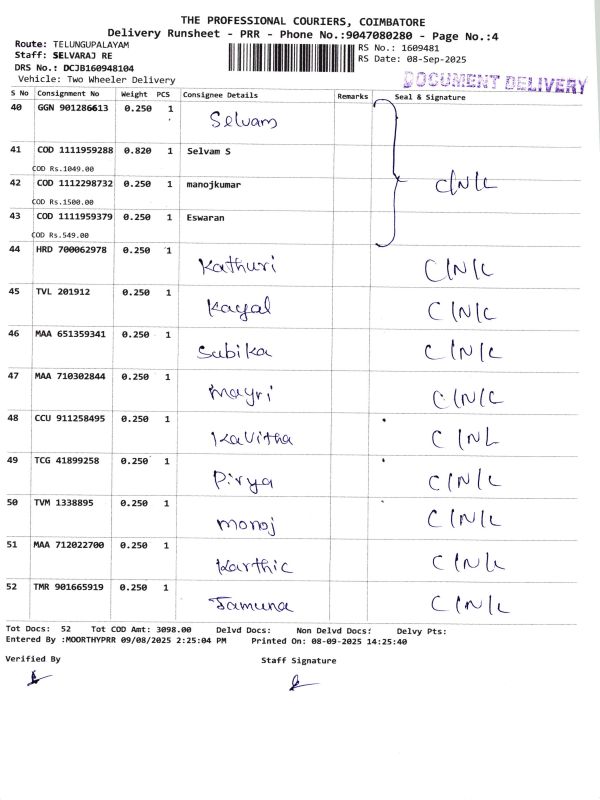 THE PROFESSIONAL COURIERS, COIMBATORE
Delivery Runsheet - PRR - Phone No.:9047080280 - Page No.:4
Route: TELUNGUPALAYAM
Staff: SELVARAJ RE
DRS No.: DCJB160948104
Vehicle: Two Wheeler Delivery
RS No.: 1609481
RS Date: 08-Sep-2025
DOCUMENT DELIVERY
S No Consignment No Weight PCS Consignee Details Remarks Seal & Signature
40 GGN 901286613 0.250 1 Selvam
41 COD 1111959288 0.820 1 Selvam S
COD Rs.1049.00
42 COD 1112298732 0.250 1 manojkumar C/N/L
COD Rs.1500.00
43 COD 1111959379 0.250 1 Eswaran
COD Rs.549.00
44 HRD 700062978 0.250 1 Kathuri C/N/L
45 TVL 201912 0.250 1 Kayal C/N/L
46 MAA 651359341 0.250 1 Subika C/N/L
47 MAA 710302844 0.250 1 Mayri C/N/L
48 CCU 911258495 0.250 1 Kavitha C/NL
49 TCG 41899258 0.250 1 Pirya C/N/L
50 TVM 1338895 0.250 1 Monoj C/N/L
51 MAA 712022700 0.250 1 Karthic C/N/L
52 TMR 901665919 0.250 1 Jamuna C/N/L
Tot Docs: 52 Tot COD Amt: 3098.00 Delvd Docs: Non Delvd Docs: Delvy Pts:
Entered By :MOORTHYPRR 09/08/2025 2:25:04 PM Printed On: 08-09-2025 14:25:40
Verified By Staff Signature